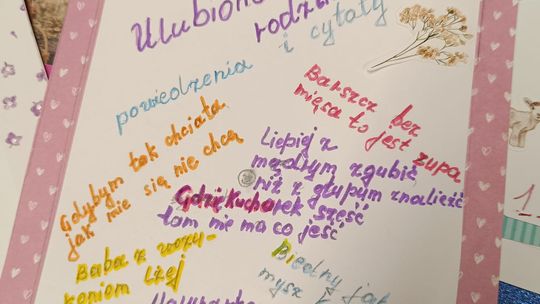 Ulubione
rodzi
i cytaty
powiedzenia
Barszcz bez
mięsa to jest zupa
Gdybym tak chciała
jak mie się nie chcą
Lepiej z
mądrym zgubić
niż z głupim znaleźć
Gdzie kucharek sześć
tam nie ma co jeść
Baba z wozu -
koniom lżej
Biedny jak
mysz